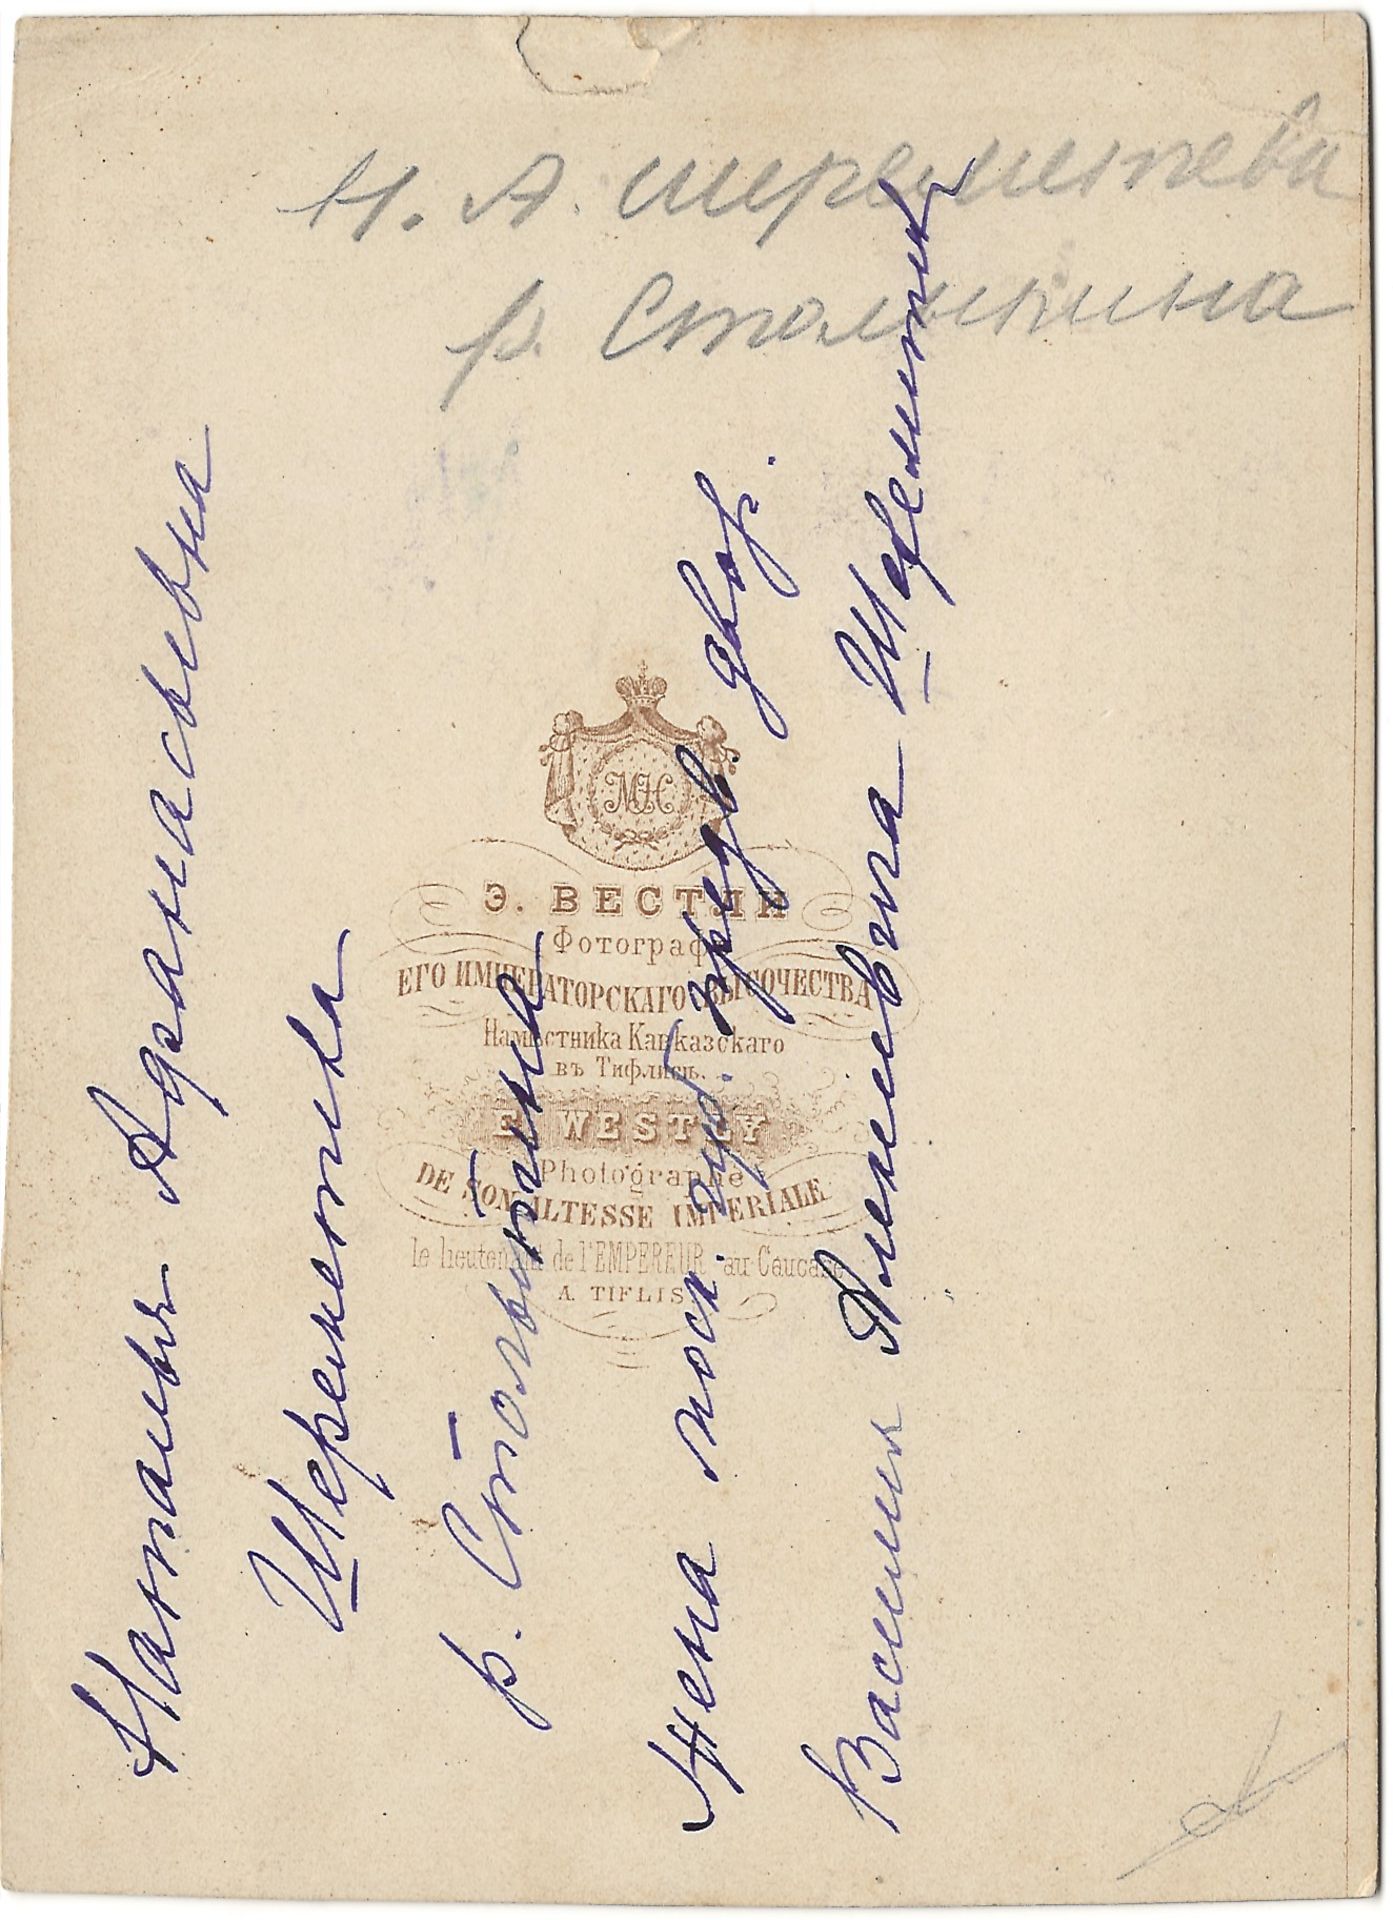 Н. А. Шереметева
р. Столыпина
Наталья Афанасьевна
Шереметева
р. Столыпина
Жена моск. губ. предв. двор.
Василия Алексеевича Шереметева
МН
Э. ВЕСТЛИ
Фотографъ
ЕГО ИМПЕРАТОРСКАГО ВЫСОЧЕСТВА
Намѣстника Кавказскаго
въ Тифлисѣ.
E. WESTLY
Photographe
DE SON ALTESSE IMPERIALE
le lieutenant de l'EMPEREUR au Caucase
A TIFLIS.